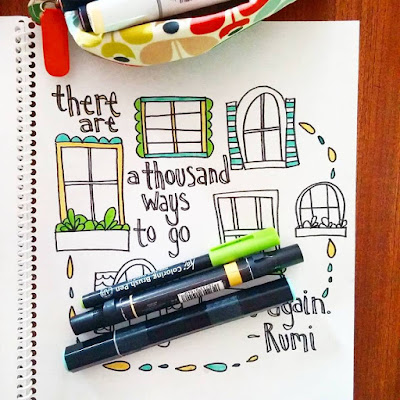 there
are
a thousand
ways
to go
again.
~Rumi
Coloring Brush Pen